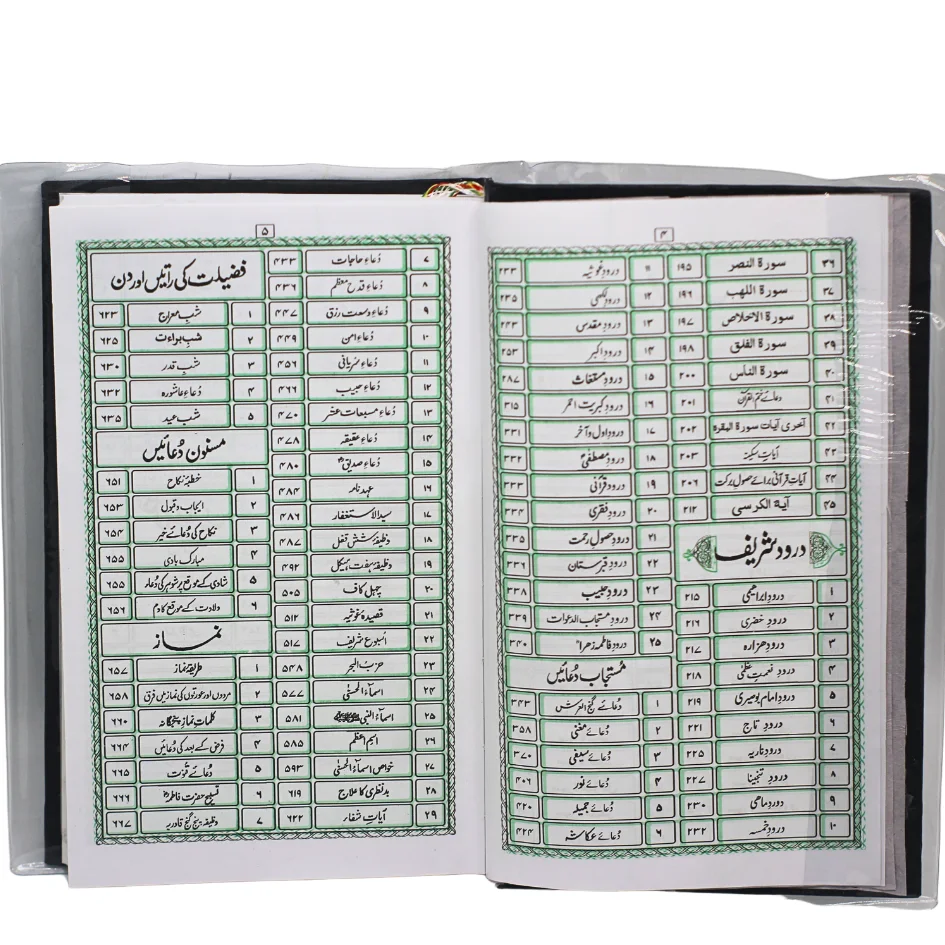 ۴
۳۶ سورة النصر ۱۹۵
۳۷ سورة اللهب ۱۹۶
۳۸ سورة الاخلاص ۱۹۷
۳۹ سورة الفلق ۱۹۸
۴۰ سورة الناس ۲۰۰
۴۱ دعائے ختم القرآن ۲۰۱
۴۲ آخری آیات سورة البقره ۲۰۲
۴۳ آیاتِ سکینہ ۲۰۳
۴۴ آیاتِ قرآنی برائے حصولِ برکت ۲۰۶
۴۵ آیة الکرسی ۲۱۲
درود شریف
۱ درودِ ابراہیمی ۲۱۵
۲ درودِ خضری ۲۱۶
۳ درودِ ہزارہ ۲۱۷
۴ درودِ نعمتِ عظمٰی ۲۱۸
۵ درودِ امام بوصیری ۲۱۹
۶ درودِ تاج ۲۲۱
۷ درودِ ناریہ ۲۲۵
۸ درودِ تنجینا ۲۲۷
۹ درودِ ماہی ۲۳۰
۱۰ درودِ خمسہ ۲۳۲
۱۱ درودِ غوثیہ ۲۳۳
۱۲ درودِ لکھی ۲۳۵
۱۳ درودِ مقدس ۲۴۳
۱۴ درودِ اکبر ۲۵۳
۱۵ درودِ مستغاث ۲۸۷
۱۶ درودِ کبریت احمر ۳۱۵
۱۷ درودِ اول و آخر ۳۳۱
۱۸ درودِ مصطفٰیؐ ۳۳۲
۱۹ درودِ قرآنی ۳۳۳
۲۰ درودِ فقری ۳۳۴
۲۱ درودِ حصولِ رحمت ۳۳۵
۲۲ درودِ قبرستان ۳۳۶
۲۳ درودِ حبیب ۳۳۸
۲۴ درودِ مستجاب الدعوات ۳۳۹
۲۵ درودِ فاطمہ زہراؓ ۳۴۰
مستجاب دعائیں
۱ دُعائے گنج العرش ۳۴۳
۲ دُعائے مغنی ۳۵۸
۳ دُعائے سیفی ۳۷۰
۴ دُعائے نور ۴۰۶
۵ دُعائے جمیلہ ۴۲۰
۶ دُعائے عکاشہ ۴۲۴
۵
۷ دُعاءِ حاجات ۴۳۳
۸ دُعاءِ قدحِ معظم ۴۳۶
۹ دُعاءِ وسعتِ رزق ۴۴۷
۱۰ دُعاءِ امن ۴۴۹
۱۱ دُعاءِ سُریانی ۴۵۶
۱۲ دُعاءِ حبیب ۴۶۶
۱۳ دُعاءِ مسبعات عشر ۴۷۰
۱۴ دُعاءِ عقیقہ ۴۷۸
۱۵ دُعاءِ صدیقؓ ۴۸۰
۱۶ عہد نامہ ۴۸۴
۱۷ سید الاستغفار ۴۸۶
۱۸ وظیفۂ شش قفل ۴۸۷
۱۹ وظیفۂ ہفت ہیکل ۴۹۲
۲۰ چہل کاف ۵۰۵
۲۱ قصیدۂ غوثیہ ۵۱۲
۲۲ اُسبوع شریف ۵۱۷
۲۳ حزبُ البحر ۵۴۸
۲۴ اسماءُ الحسنٰی ۵۷۷
۲۵ اسماءُ النبی ﷺ ۵۸۱
۲۶ اسمِ اعظم ۵۸۵
۲۷ خواصِ اسماءُ الحسنٰی ۵۹۳
۲۸ بد نظری کا علاج ۶۱۹
۲۹ آیاتِ شفاء ۶۲۲
فضیلت کی راتیں اور دن
۱ شبِ معراج ۶۲۳
۲ شبِ براءت ۶۲۵
۳ شبِ قدر ۶۳۰
۴ دُعاءِ عاشورہ ۶۳۲
۵ شبِ عید ۶۳۵
مسنون دُعائیں
۱ خطبۂ نکاح ۶۵۱
۲ ایجاب و قبول ۶۵۳
۳ نکاح کی دُعائے خیر ۶۵۴
۴ مبارک بادی ۶۵۵
۵ شادی کے موقع پر شوہر کی دُعاء ۶۵۵
۶ ولادت کے موقع کا دم ۶۵۶
نماز
۱ طریقۂ نماز ۶۵۷
۲ مردوں اور عورتوں کی نماز میں فرق ۶۵۸
۳ کلماتِ نماز پنجگانہ ۶۶۰
۴ فرض کے بعد کی دُعائیں ۶۶۴
۵ دُعائے قنوت ۶۶۵
۶ تسبیح حضرت فاطمہؓ ۶۶۶
۷ وظیفہ پنج گنج قادریہ ۶۶۷